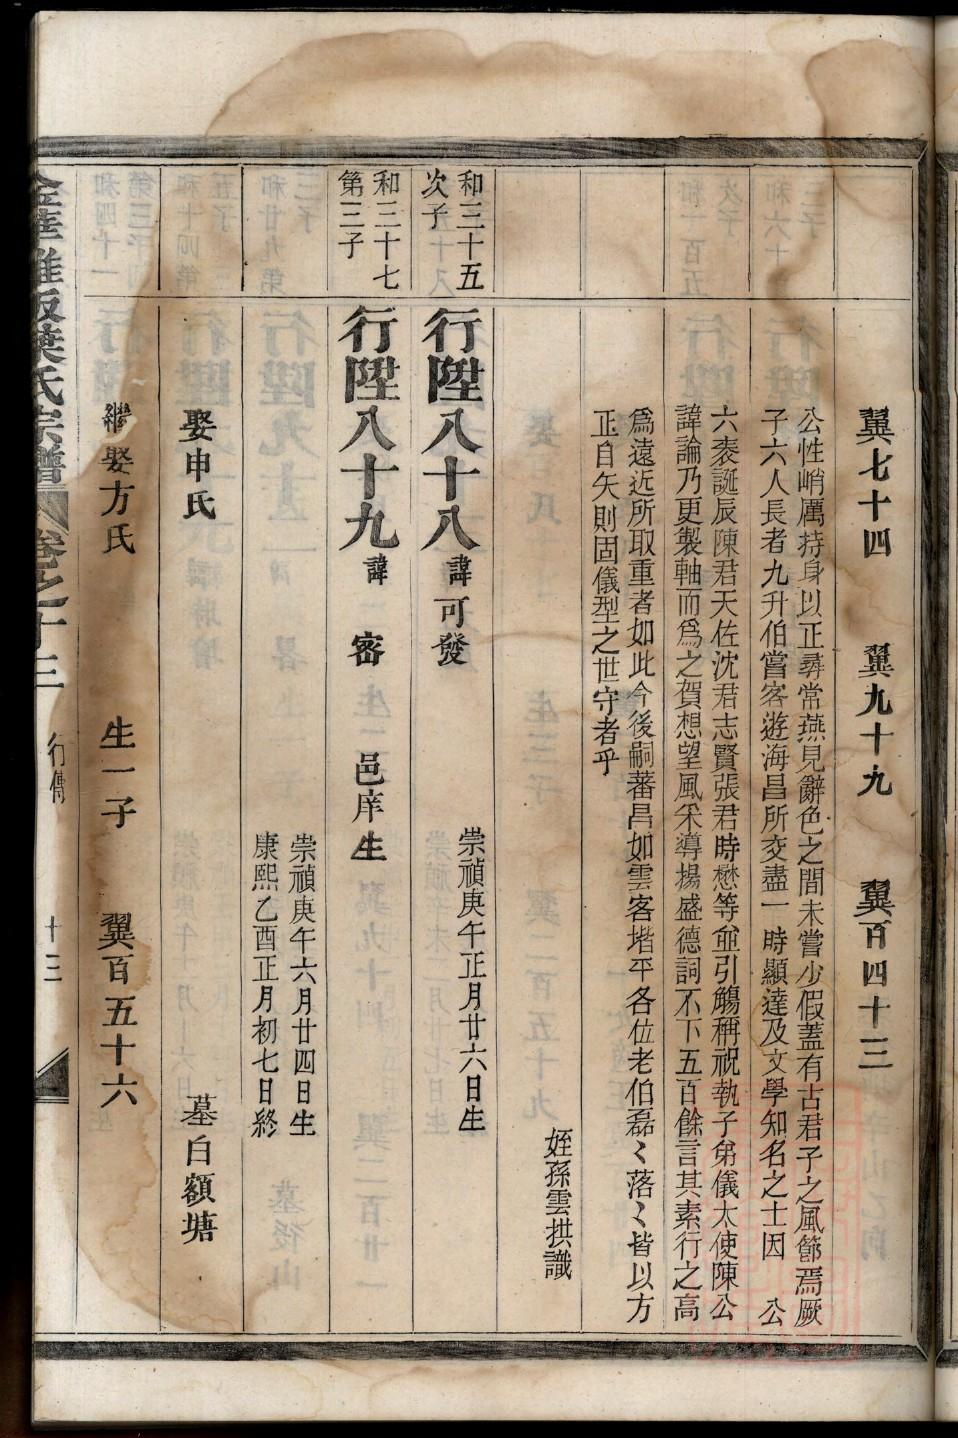 翼七十四 翼九十九 翼百四十三
公性峭厲持身以正尋常燕見辭色之間未嘗少假蓋有古君子之風節焉厥
子六人長者九升伯嘗客遊海昌所交盡一時顯達及文學知名之士因 公
六袠誕辰陳君天佐沈君志賢張君時懋等並引觴稱祝執子弟儀太使陳公
諱論乃更製軸而爲之賀想望風采導揚盛德詞不下五百餘言其素行之高
爲遠近所取重者如此今後嗣蕃昌如雲客堦平各位老伯磊〻落〻皆以方
正自矢則固儀型之世守者乎
姪孫雲拱識
和三十五
次子
行陞八十八 諱可發
崇禎庚午正月廿六日生
和三十七
第三子
行陞八十九 諱 密 邑庠生
崇禎庚午六月廿四日生
康熙乙酉正月初七日終
娶申氏 墓白額塘
繼娶方氏 生一子 翼百五十六
金華雅畈葉氏宗譜 卷之十三 行傳 十三